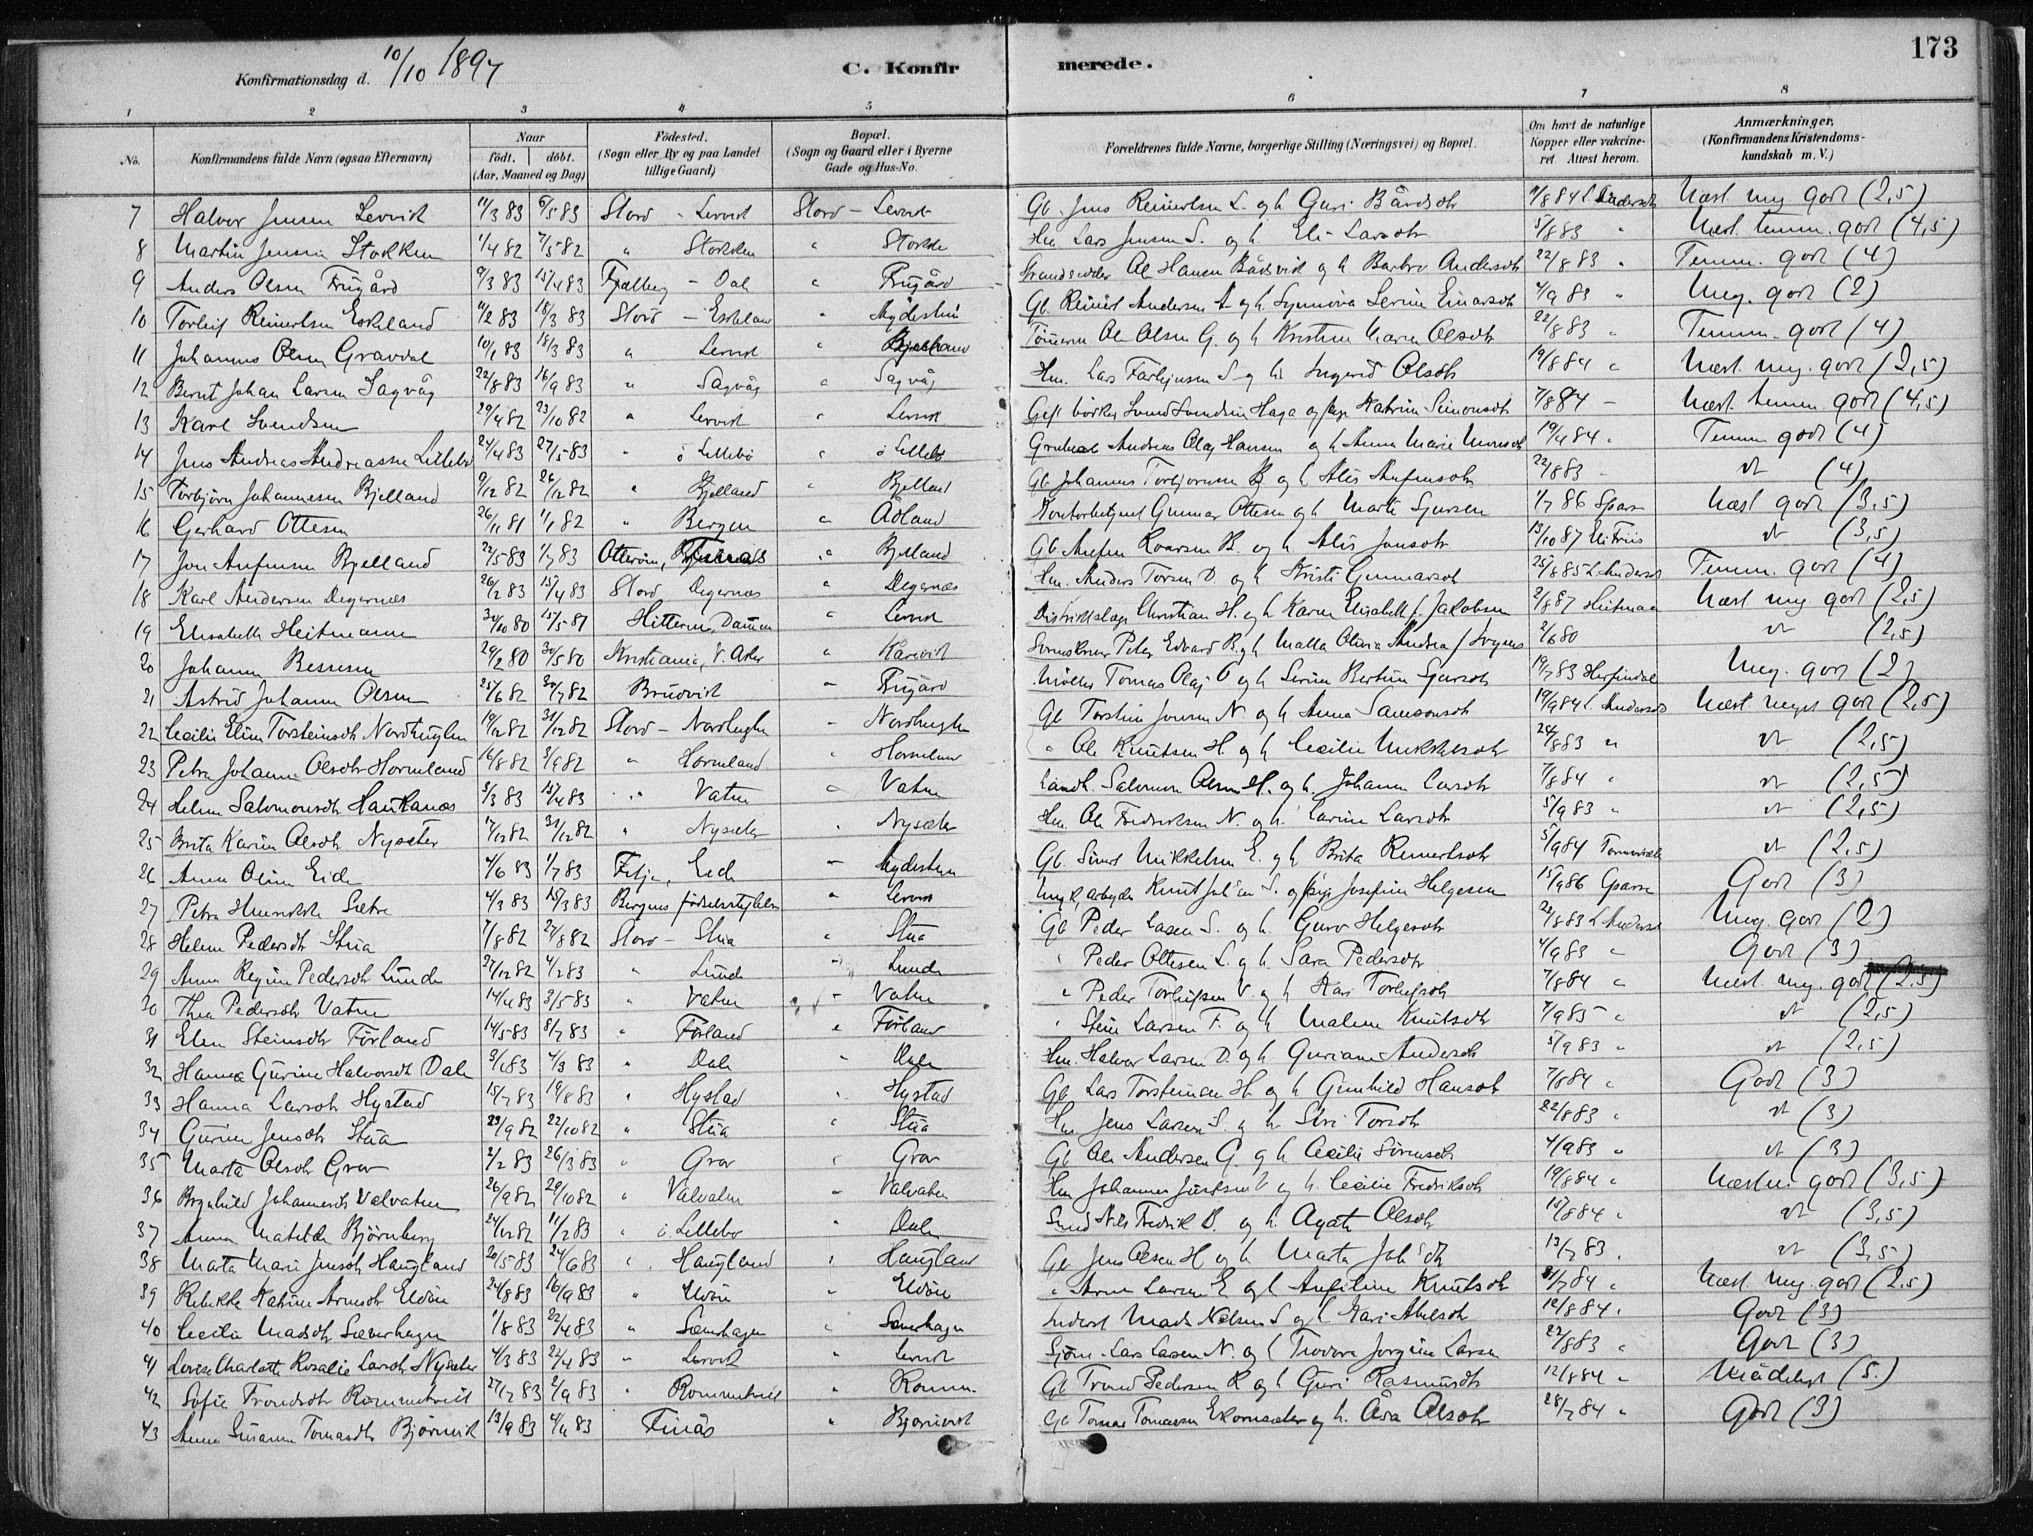 173
Konfirmationsdag d. 10/10 1897
C. Konfirmerede.
1 2 3 4 5 6 7 8
No. Konfirmandens fulde Navn (ogsaa Efternavn) Naar født. døbt. (Aar, Maaned og Dag) Fødested. (Sogn eller By og paa Landet tillige Gaard) Bopæl. (Sogn og Gaard eller i Byerne Gade og Hus-No. Forældrenes fulde Navne, borgerlige Stilling (Næringsvei) og Bopæl. Om havt de naturlige Kopper eller vakcineret Attest herom. Anmærkninger, (Konfirmandens Kristendomskundskab m. V.)
7 Halvor Jensen Lervik 11/3 83 6/5 83 Stord - Lervik Stord - Lervik Gb. Jens Reinertsen L. og h Guri Bårdsdtr 11/8 84 L. Andersen Næst meg godt (2,5)
8 Martin Jensen Stokken 1/4 82 7/5 82 " Stokken " Stokken Hm Lars Jensen S. og h. Eli Larsdtr 5/8 83 " Næst temm. godt (4,5)
9 Anders Olsen Frugård 9/3 83 15/4 83 Fjelberg - Dale " Frugård Strandsidder Ole Hansen Bådsvik og h Barbro Andersdtr 22/8 83 " Temm. godt (4)
10 Torleif Reinertsen Eskeland 11/2 83 18/3 83 Stord - Eskeland " Gb. Reinert Andersen og h. Synnøva Serine Einarsdtr 4/9 83 " Meg. godt (2)
11 Johannes Olsen Gravdal 10/1 83 18/3 83 " Lervik " Tømrerm Ole Olsen G. og h Kristine Maria Olsdtr 22/8 83 " Temm. godt (4)
12 Bernt Johan Larsen Sagvåg 22/8 83 16/9 83 " Sagvåg " Sagvåg Hm. Lars S og h Ingerid Olsdtr 19/8 84 " Næst. meg. godt (2,5)
13 Karl Svendsen 29/9 82 23/10 82 " Lervik " Lervik Svend Svendsen Haga og Katrine Simonsdtr 7/8 84 - Næst temm. godt (4,5)
14 Jens Andreas Andreassen Lillebø 24/4 83 27/5 83 " ö Lillebö " ö Lillebö Andreas Olaj Hansen og h Anna Marie Monsdtr 19/4 84 " Temm godt (4)
15 Torbjörn Johannesen Bjelland 9/12 82 26/12 82 " Bjelland " Bjelland Gb Johannes Torbjørnsen B og h Alis Anfinsdtr 22/8 83 (4)
16 Gerhard Ottesen 26/11 81 1/1 82 " Bergen " Ådland Gunnar Ottesen og h Marte Sjursen 1/7 86 Sparre Næst godt (3,5)
17 Jon Anfinsen Bjelland 22/5 83 1/7 83 Finnås " Bjelland Gb Anfin Roarsen B. og h Alis Jonsdtr 13/10 87 (3,5)
18 Karl Andersen Degernæs 26/2 83 15/4 83 Stord Degernæs " Degernæs Hm. Anders Torsen D. og h Kristi Gunnarsdtr 25/8 85 L. Anderssen Temm. godt (4)
19 Elisabeth Heitmann 30/10 80 15/5 81 Hitteren, " Lervik Distriktslæge Christian H. og h Karen Elisabeth f. Jakobsen 2/8 87 Heitmann Næst meg godt (2,5)
20 Johanne Bessesen 29/2 80 30/5 80 Kristiania, V. Aker " Kårevik Peter Edvard B og h Malla Olivia Andrea f. 2/6 80 (2,5)
21 Astrid Johanne Olsen 25/6 82 30/7 82 Bruvik " Frugård Møller Tomas Olaj O og h Serine Bertine Sjursdtr 19/7 83 Herfindal Meg. godt (2)
22 Cecilie Eline Torsteinsdtr Nordhuglen 19/12 82 31/12 82 Stord - Nordhuglen - Nordhuglen Gb Torstein Jonsen N. og h Anna Samsonsdtr 19/9 84 L. Anderssen Næst meget godt (2,5)
23 Petra Johanne Olsdtr Horneland 16/8 82 3/9 82 " Horneland " Horneland " Ole Knutsen H. og h Cecilie Mikkelsdtr 24/8 83 " (2,5)
24 Helene Salomonsdtr Haukanæs 3/3 83 15/4 83 " Vatne " Vatne Landh. Salomon Olsen H. og h. Johanne Larsdtr 7/8 84 " (2,5)
25 Brita Karine Olsdtr Nysæter 17/12 82 31/12 82 " Nysæter " Nysæter Hm. Ole Fredriksen N. og h. Larine Larsdtr 5/9 83 " (2,5)
26 Anna Oline Eide 4/6 83 1/7 83 Fitje, Eide - Gb. Simon Mikkelsen E. og h Brita Reinertsdtr 5/9 84 (2,5)
27 Petra Henrikke Sætre 4/3 83 15/3 83 Bergens fødselsstiftelse " Lervik Knut Joh'sen S. og pige Josefine Helgesen 15/9 86 Sparre Godt (3)
28 Helene Pedersdtr Stua 7/8 82 27/8 82 Stord - Stua " Stua Gb Peder Larsen S. og h. Guro Helgesdtr 22/8 83 L. Anderssen Meg. godt (2)
29 Anna Regine Pedersdtr Lunde 27/12 82 4/2 83 " Lunde " Lunde " Peder Ottesen L. og h. Sara Pedersdtr 4/9 83 " Godt (3)
30 Thea Pedersdtr Vatne 14/4 83 3/5 83 " Vatne - Vatne " Peder Torleifsen V. og h Kari Torleifsdtr 7/8 84 " Næst. meg. godt (2.5)
31 Elen Steinsdtr Förland 14/5 83 8/7 83 " Förland " Förland " Stein Larsen F. og h Malene Knutsdtr 7/9 85 " (2,5)
32 Hanna Gurine Halvorsdtr Dale 3/1 83 4/3 83 " Dale " Dale Hm. Halvor Larsen D. og h Guriane Andersdtr 5/9 83 " (2,5)
33 Hanna Larsdtr Hystad 15/7 83 19/8 83 " Hystad " Hystad Gb Lars Torsteinsen H og h Gunhild Hansdtr 7/8 84 " Godt (3)
34 Gurine Jensdtr Stua 23/9 82 22/10 82 " Stua " Stua Hm Jens Larsen S. og h Siri Torsdtr 22/8 83 " (3)
35 Marta Olsdtr Grov 2/2 83 26/3 83 " Grov " Grov Gb Ole Andersen G. og h Cecilie Sörensdtr 4/9 83 " (3)
36 Brynhild Johannesdtr Valvatne 26/9 82 29/10 82 " Valvatne - Valvatne Hm Johannes V og h. Cecilie Fredriksdtr 19/8 84 " Næsten godt (3,5)
37 Anna Matilde Björnberg 24/12 82 11/2 83 " ö Lillebø " Dale Smed Nils Fredrik B. og h. Agate Olsdtr 15/8 84 " (3,5)
38 Marta Marie Jensdtr Haugland 20/5 83 24/6 83 " Haugland " Haugland Gb Jens Olsen H og h Marta Joh'sdtr 13/7 83 " (3,5)
39 Rebekka Katrine Arnesdtr Eldöen 24/8 83 16/9 83 " Eldöen " Eldöen " Arne Larsen E og h Anfiline Knutsdtr 31/7 84 " Næst meg. godt (2,5)
40 Cecilia Madsdtr Sæverhagen 1/8 83 22/4 83 " Sæverhagen " Sæverhagen Inderst Mads Nelsen S og h Kari Abelsdtr 12/8 84 " Godt (3)
41 Lovise Charlotte Rosalie Larsdtr Nysæter 4/3 83 22/4 83 " Lervik " Lervik Sjöm. Lars Larsen N. og h Teodora Jørgine Larsen 22/8 83 " Godt (3)
42 Sofie Trondsdtr Rommetveit 27/7 83 2/9 83 " Rommetveit " Romm. Gb Trond Pedersen R og h Guri Rasmusdtr 12/8 84 " Mådeligt (5.)
43 Anna Susanne Tomasdtr Björnevik 13/9 83 4/11 83 Finås " Bjørnevik Gb Tomas Tomassen Ekornsæter og h. Åsa Olsdtr 28/7 84 " Godt (3)